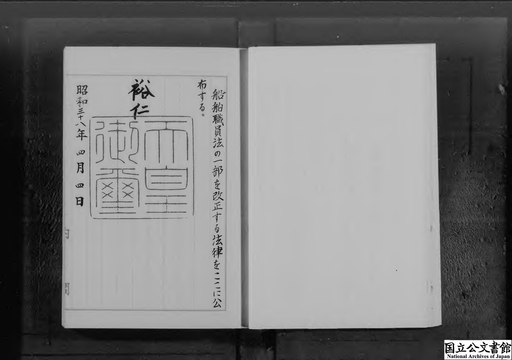 船舶職員法の一部を改正する法律をここに公
布する。
裕仁
天皇
御璽
昭和三十八年四月四日
国立公文書館
National Archives of Japan